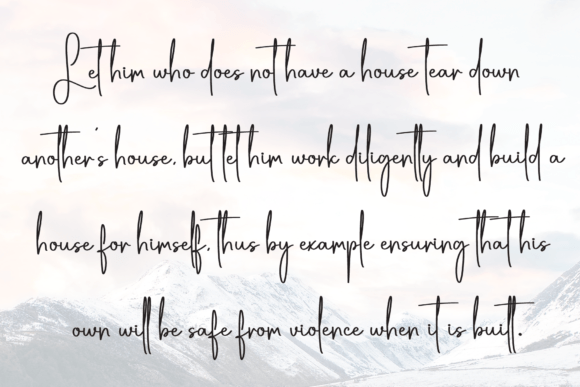 Let him who does not have a house tear down
another's house, but let him work diligently and build a
house for himself, thus by example ensuring that his
own will be safe from violence when it is built.